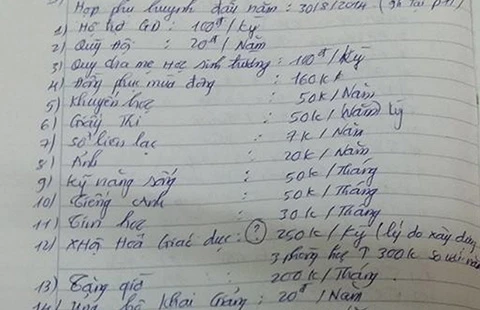 Họp phụ huynh đầu năm : 30/8/2014
1) Hỗ trợ GD : 100đ / Kỳ
2) Quỹ Đội : 20đ / Năm
3) Quỹ cha mẹ học sinh trường : 100đ / Kỳ
4) Đồng phục mùa đông : 160k
5) Khuyến học : 50k / Năm
6) Giấy Thi : 50k / Năm Kỳ
7) Sổ liên lạc : 7k / Năm
8) Ảnh : 20k / Năm
9) Kỹ năng sống : 50k / Tháng
10) Tiếng Anh : 50k / Tháng
11) Tin học : 30k / Tháng
12) XHội Hoá Giáo dục : ? 250k / Kỳ ( lý do xây dựng
3 phòng học ↑ 300k so với năm
13) Tăng giờ : 200k / Tháng
14) Ủng hộ Khai Giảng : 20đ / Năm